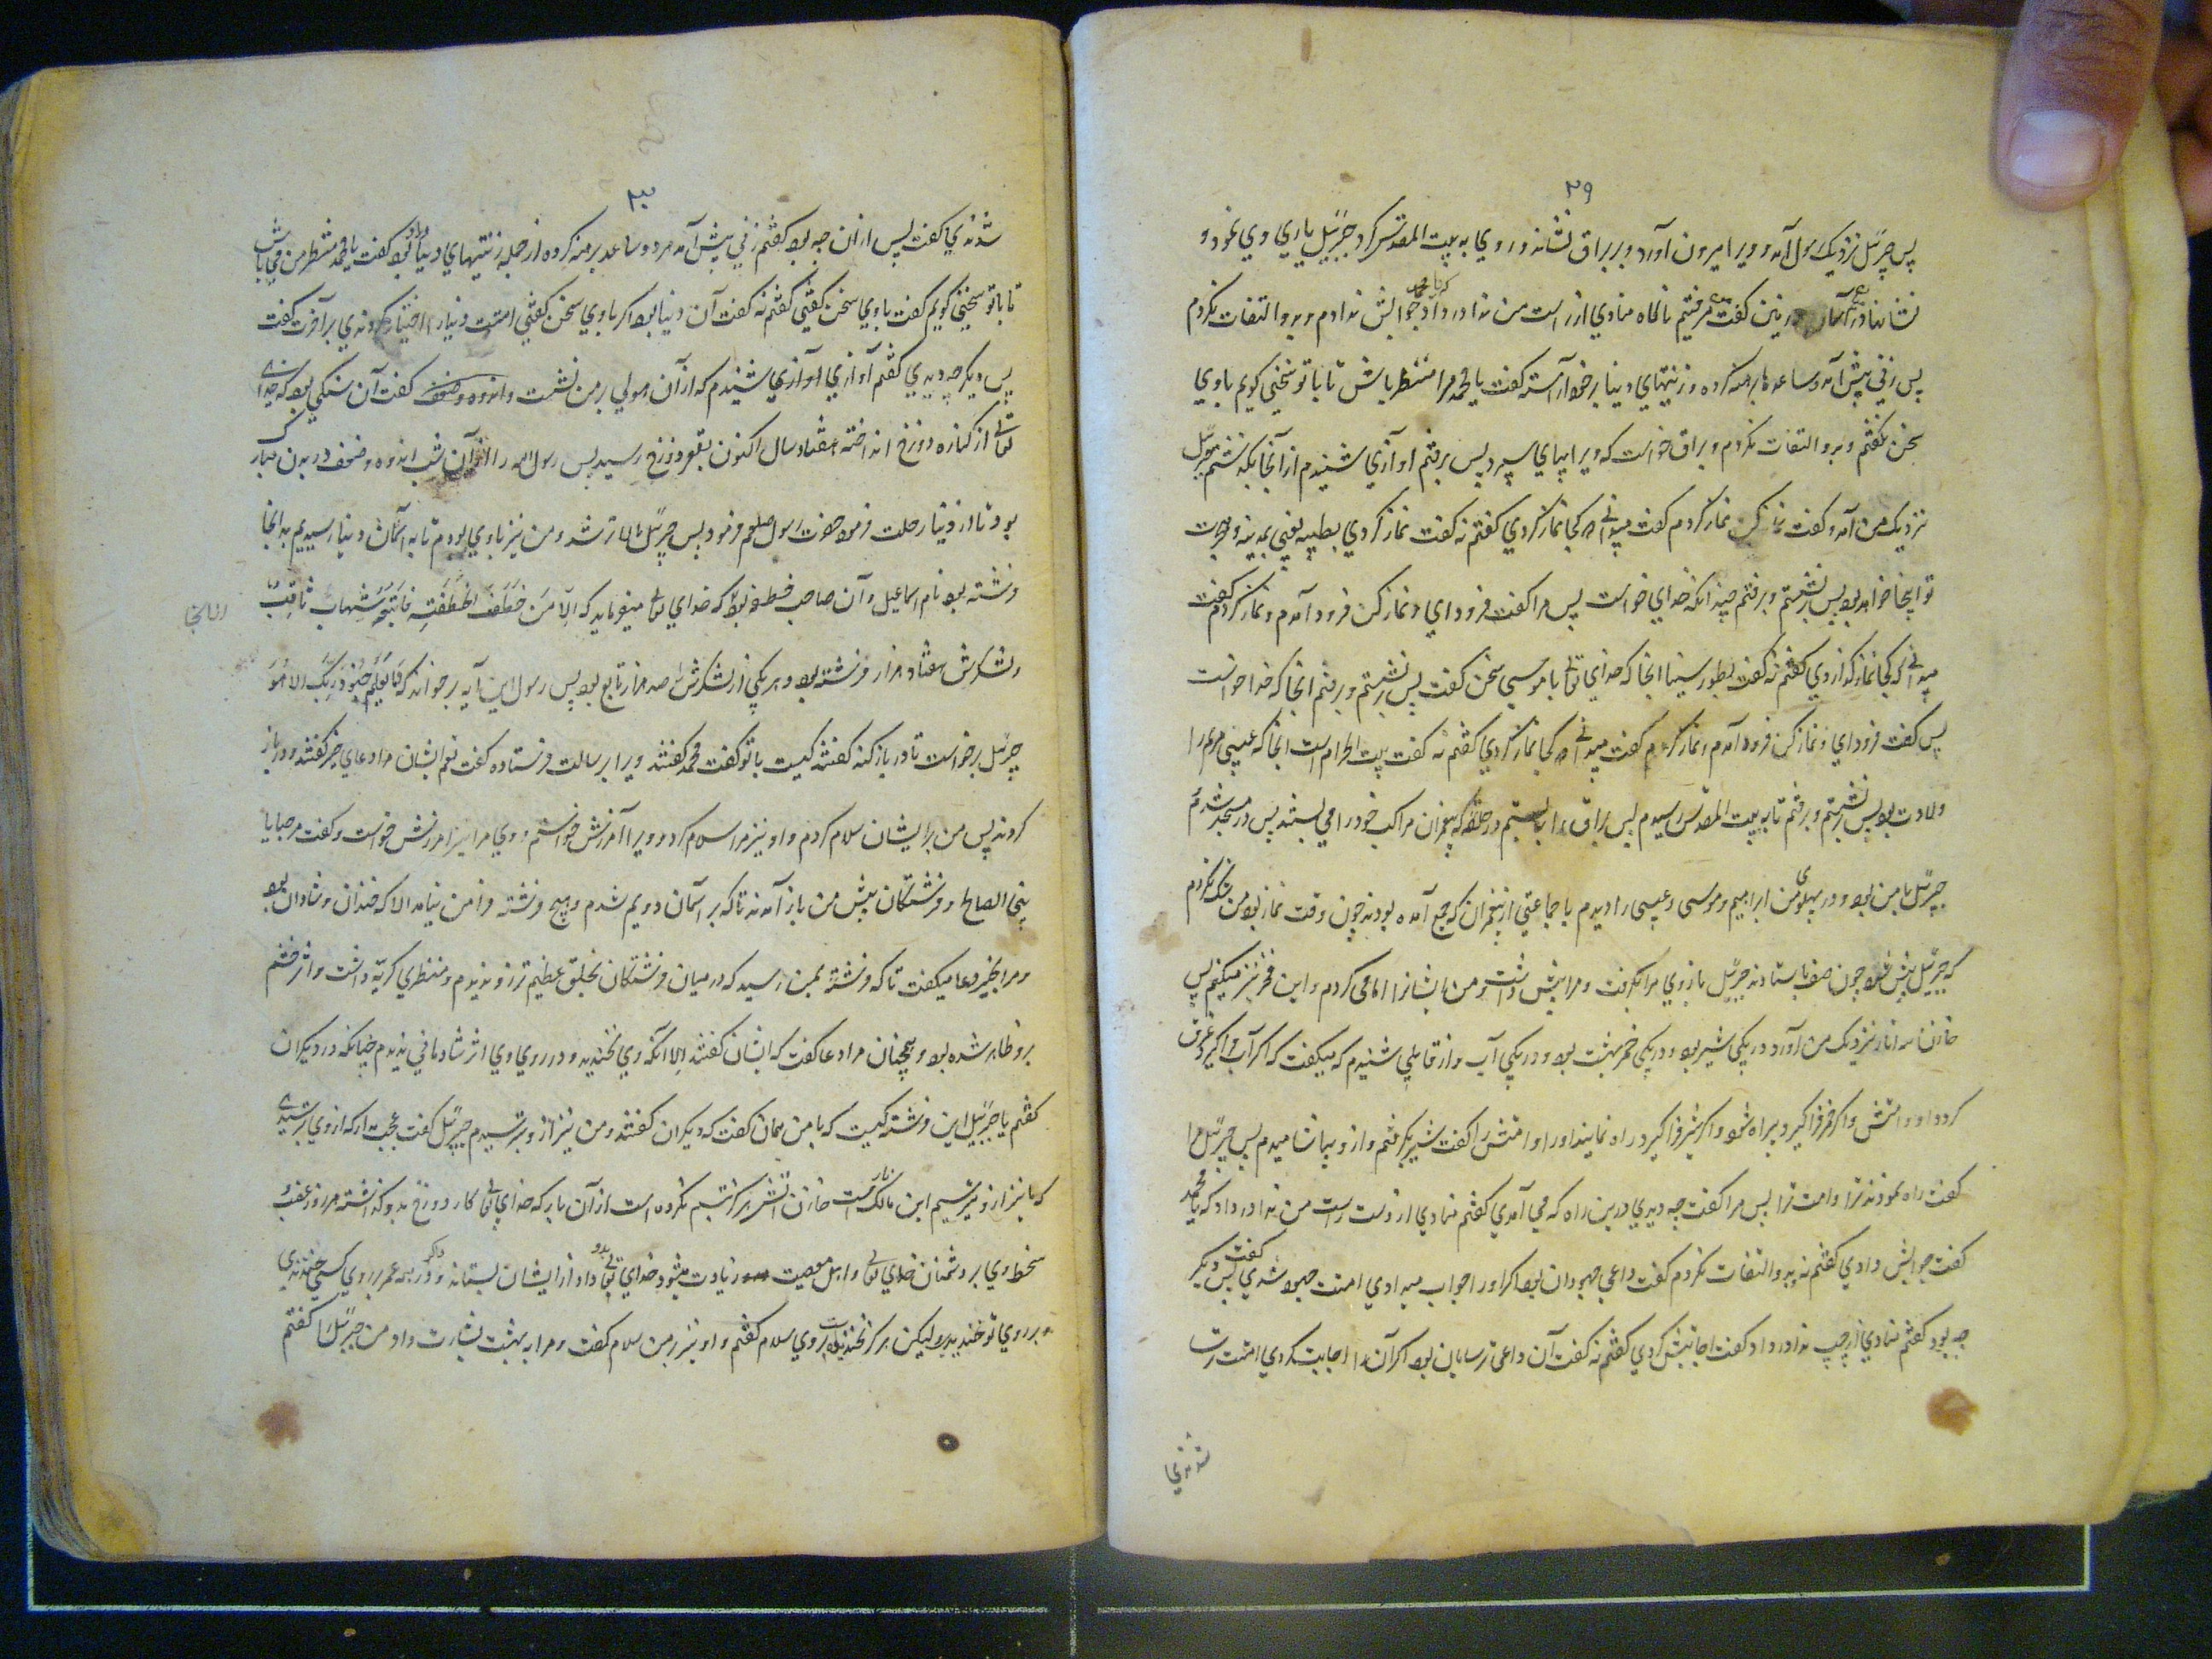 ۲۹
پس جبرئیل نزدیک رسول آمد و ویرا بیرون آورد و بر براق نشاند و روی به بیت المقدس کرد جبرئیل یاری وی نمود و
نشانها در آسمان و زمین گفت میرفتم ناگاه منادی از راست من ندا در داد که یا محمد جوابش ندادم و بدو التفات نکردم
پس زنی پیش آمد و ساعدها برهنه کرده و زینتهای دنیا بر خود آراسته گفت یا محمد مرا منتظر باش تا با تو سخنی گویم با وی
سخن نگفتم و بدو التفات نکردم و براق خواست که ویرا بپای سپرد پس برفتم آوازی شنیدم از آنجا بگذشتم جبرئیل
نزدیک من آمد و گفت نماز کن نماز کردم گفت میدانی که کجا نماز کردی گفتم نه گفت نماز کردی بطیبه یعنی بمدینه و هجرت
تو اینجا خواهد بود پس برنشستم و برفتم چندانکه خدای خواست پس مرا گفت فرود ای و نماز کن فرود آمدم و نماز کردم گفت
میدانی که کجا نماز کردی گفتم نه گفت بطور سینا انجا که خدای تعالی با موسی سخن گفت پس برنشستم و برفتم انجا که خدا خواست
پس گفت فرود ای و نماز کن فرود آمدم و نماز کردم گفت میدانی که کجا نماز کردی گفتم نه گفت بیت الحرام است انجا که عیسی مریم را
ولادت بود پس برنشستم و برفتم تا به بیت المقدس رسیدم پس براق را ببستم در حلقه که پیغمران مراکب خود را می بستند پس در مسجد شدم
جبرئیل با من بود و در پهلوی من ابراهیم و موسی و عیسی را دیدم با جماعتی از پیغمران که جمع آمده بودند چون وقت نماز بود من شک نکردم
که جبرئیل پیش شود چون صف بایستادند جبرئیل بازوی مرا بگرفت و مرا پیش داشت و من ایشانرا امامی کردم و این فخر نیز میکنم پس
خازن سه انا نزدیک من آورد در یکی شیر بود و در یکی خمر بهشت بود و در یکی آب و از قایلی شنیدم که میگفت که اگر آب فراگیرد غرق
گردد او و امتش و اگر خمر فراگیرد براه شود و اگر شیر فراگیرد راه نمایند او را و امتش را گفت شیر بگرفتم و از و بیاشامیدم پس جبرئیل مرا
گفت راه نمودند ترا و امت ترا پس مرا گفت چه دیدی درین راه که می آمدی گفتم منادی از دست راست من ندا در داد که یا محمد
گفت جوابش دادی گفتم نه و بدو التفات نکردم گفت داعی جهودان بود اگر او را جواب میدادی امت جهود شدی گفت پس دیگر
چه بود گفتم منادی از چپ ندا در داد گفت اجابتش کردی گفتم نه گفت آن داعی ترسایان بود اگر آن را اجابت کردی امتت ترسا
شدندی
شدندی گفت پس از ان چه بود گفتم زنی پیش آمد هر دو ساعد برهنه کرده از جمله زینتهای دنیا با او بود گفت یا محمد منتظر من می باش
تا با تو سخنی گویم گفت با وی سخن گفتی گفتم نه گفت آن دنیا بود اگر با وی سخن گفتی امتت دنیا را اختیار کردندی بر آخرت گفت
پس دیگر چه دیدی گفتم آوازی آوازی شنیدم که از آن هولی بر من نشست و اندوه و ضعف گفت آن سنگی بود که خدای
تعالی از کناره دوزخ انداخته هفتاد سال اکنون بقعر دوزخ رسید پس رسول الله را از آن شب اندوه و ضعف در بدن مبارک
بود تا از دنیا رحلت فرمود حضرت رسول صلعم فرمود پس جبرئیل بالاتر شد و من نیز با وی بودم تا به آسمان دنیا رسیدیم به انجا
فرشته بود نام اسماعیل و آن صاحب خطفه بود که خدای تعالی میفرماید که اِلّا مَن خَطِفَ الخَطفَةَ فَاتبَعَهُ شِهابٌ ثاقِبٌ
و لشکرش هفتاد هزار فرشته بود و هر یکی از لشکرش را صد هزار تابع بود پس رسول این آیه بر خواند که وَما یَعلَمُ جُنودَ رَبِّکَ الا هُوَ
جبرئیل برخواست تا در باز کند گفتند کیست با تو گفت محمد گفتند ویرا برسالت فرستاده گفت نعم ایشان مرا دعای خیر گفتند و در باز
کردند پس من بر ایشان سلام کردم و او نیز مرا سلام کرد و ویرا آمرزش خواستم و وی مرا نیز آمرزش خواست و گفت مرحبا یا
نبی الصالح و فرشتگان پیش من باز آمدند تا که بر آسمان دویم شدم و هیچ فرشته فرا من نیامد الا که خندان و شادان بود
و مرا بخیر دعا میگفت تا که فرشتهٔ بمن رسید که در میان فرشتگان بخلق عظیم تر ز و ندیدم و منظری کریه داشت و اثر خشم
برو ظاهر شده بود و همچنان مرا دعا گفت که ایشان گفتند الا آنکه وی نخندید و در روی وی اثر شادمانی ندیدم چنانکه در دیگران
گفتم یا جبرئیل این فرشته کیست که با من همان گفت که دیگران گفتند و من نیز از و بترسیدم جبرئیل گفت عجب مدار که از وی بترسیدی
که ما نیز از و بترسیم این مالک است خازن آتش هرگز تبسم نکرده است از آن باز که خدای تعالی کار دوزخ بدو گذاشته هر روز غضب
و سخط وی بر دشمنان خدای تعالی و اهل معصیت زیادت میشود خدای تعالی بدو داد از ایشان بستاند و اگر در همه عمر بر روی کسی خندیدی
بر روی تو خندیدی لیکن هرگز نخندیده است بر وی سلام گفتم و او نیز بر من سلام گفت و مرا به بهشت بشارت داد من جبرئیل را گفتم